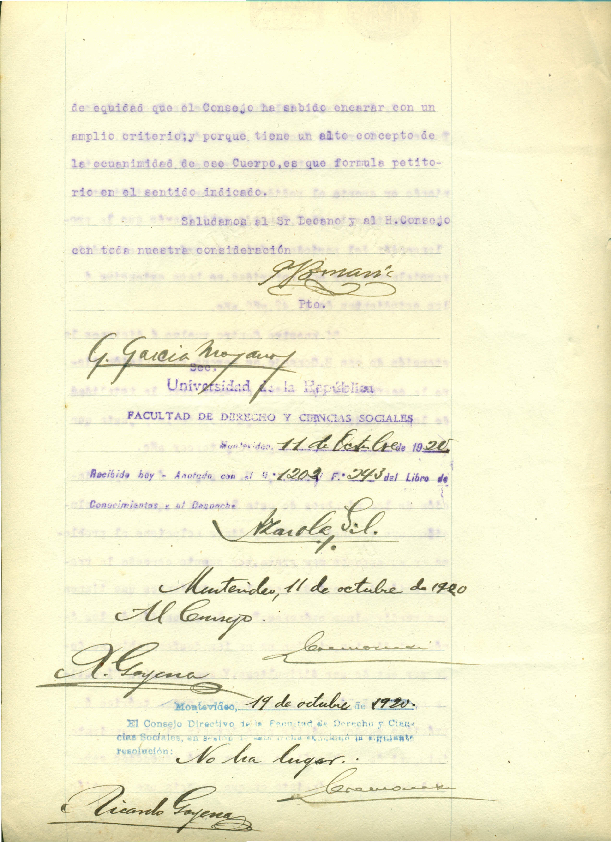 de equidad que el Consejo ha sabido encarar con un
amplio criterio;y porque tiene un alto concepto de
la ecuanimidad de ese Cuerpo,es que formula petito-
rio en el sentido indicado.
Saludamos al Sr Decano y al H.Consejo
con toda nuestra consideración
Pte.
G. García Moyano
Sec.
Universidad de la República
FACULTAD DE DERECHO Y CIENCIAS SOCIALES
Montevideo, 11 de Octubre de 1920
Recibida hoy - Anotada con el N.º 1202 F. 243 del Libro de
Conocimientos y al Despacho
Azarola Gil.
Montevideo, 11 de octubre de 1920
Al Consejo.
R. Goyena
Montevideo, 19 de octubre de 1920.
El Consejo Directivo de la Facultad de Derecho y Cien-
cias Sociales, en sesión de esta fecha la siguiente
resolución:
No ha lugar.
Ricardo Goyena